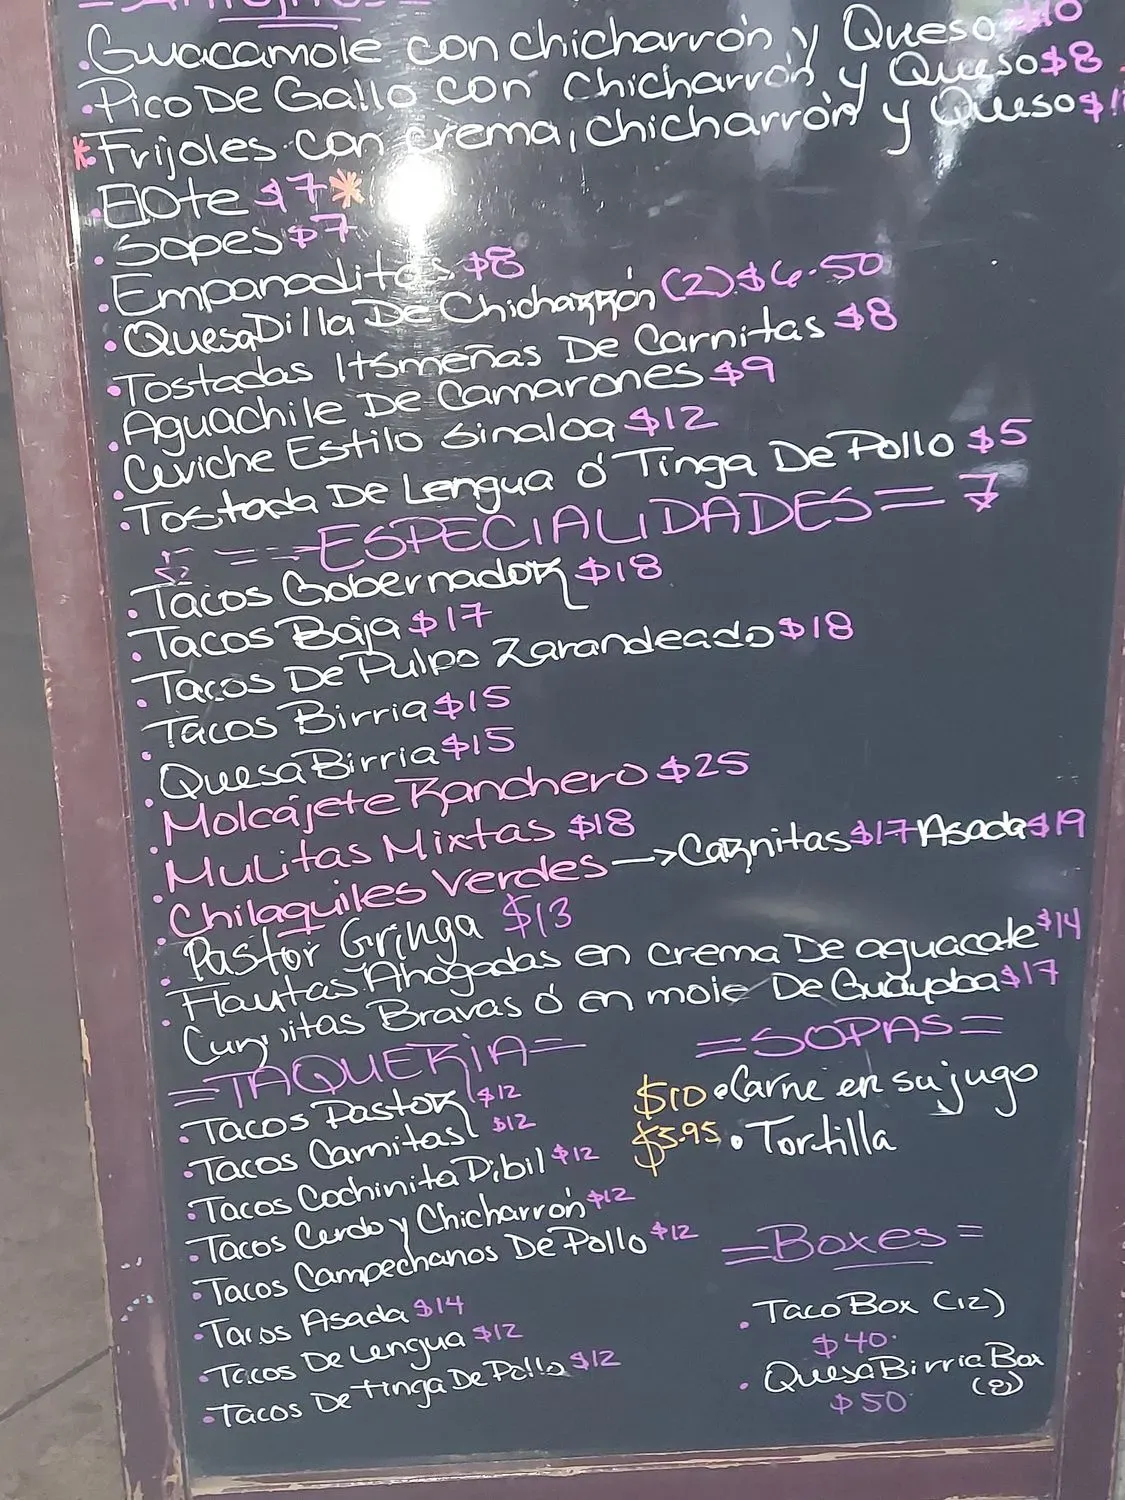 = ANTOJITOS =
• Guacamole con chicharrón y Queso $10
• Pico De Gallo con Chicharrón y Queso $8
* Frijoles con crema, chicharrón y Queso
• Elote $7 *
• Sopes $7
• Empanaditas $8
• QuesaDilla De Chicharrón (2) $6.50
• Tostadas Itsmeñas De Carnitas $8
• Aguachile De Camarones $9
• Ceviche Estilo Sinaloa $12
• Tostada De Lengua ó Tinga De Pollo $5
= ESPECIALIDADES =
• Tacos Gobernador $18
• Tacos Baja $17
• Tacos De Pulpo Zarandeado $18
• Tacos Birria $15
• QuesaBirria $15
• Molcajete Ranchero $25
• Mulitas Mixtas $18
• Chilaquiles Verdes → Carnitas $17 Asada $19
• Pastor Gringa $13
• Flautas Ahogadas en crema De aguacate $14
• Bravas ó en mole De Guayaba $17
= TAQUERIA =
• Tacos Pastor $12
• Tacos Carnitas $12
• Tacos Cochinita Dibil $12
• Tacos Cerdo y Chicharrón $12
• Tacos Campechanos De Pollo $12
• Tacos Asada $14
• Tacos De Lengua $12
• Tacos De tinga De Pollo $12
= SOPAS =
$10 • Carne en su jugo
.95 • Tortilla
= Boxes =
• Taco Box (12)
$40.
• QuesaBirria Box
(8)
$50